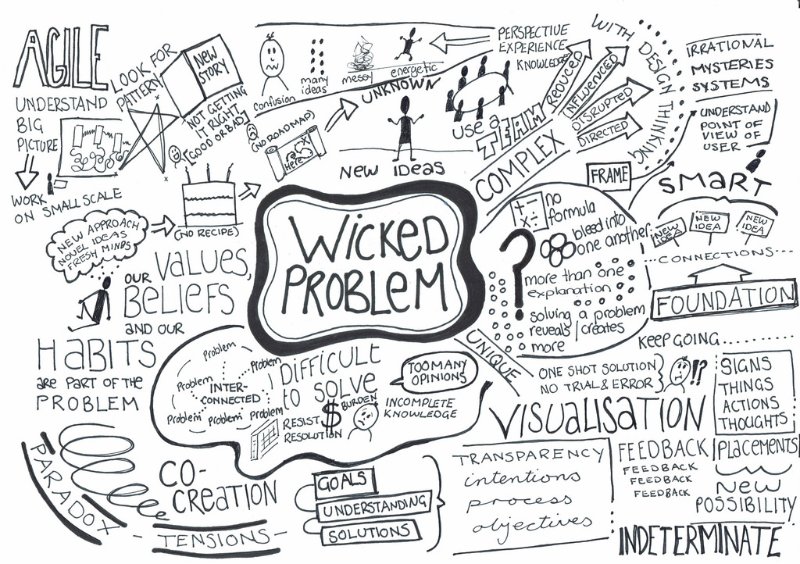 AGILE
UNDERSTAND
BIG
PICTURE
WORK
ON SMALL SCALE
LOOK FOR
PATTERN
NEW
STORY
NOT GETTING
IT RIGHT
(GOOD OR BAD)
confusion
many
ideas
messy
energetic
UNKNOWN
PERSPECTIVE
EXPERIENCE
KNOWLEDGE
(NO ROADMAP)
Here
NEW IDEAS
USE A
TEAM
COMPLEX
REDUCED
INFLUENCED
DISRUPTED
DIRECTED
WITH DESIGN THINKING
IRRATIONAL
MYSTERIES
SYSTEMS
UNDERSTAND
POINT OF
VIEW OF
USER
FRAME
SMART
NEW IDEA
NEW
IDEA
NEW
IDEA
CONNECTIONS
FOUNDATION
(NO RECIPE)
NEW APPROACH
NOVEL IDEAS
FRESH MINDS
OUR VALUES,
BELIEFS
AND OUR
HABITS
ARE PART OF THE
PROBLEM
WICKED
PROBLEM
no
formula
bleed into
one another
?
more than one
explanation
solving a problem
reveals/creates
more
UNIQUE
KEEP GOING
ONE SHOT SOLUTION
NO TRIAL & ERROR
!?
SIGNS
THINGS
ACTIONS
THOUGHTS
PLACEMENTS
NEW
POSSIBILITY
Problem
Problem
Problem
Problem
Problem
Problem
INTER-
CONNECTED
DIFFICULT
to SOLVE
RESIST
RESOLUTION
$
BURDEN
TOO MANY
OPINIONS
INCOMPLETE
KNOWLEDGE
VISUALISATION
TRANSPARENCY
intentions
process
objectives
FEEDBACK
FEEDBACK
FEEDBACK
FEEDBACK
INDETERMINATE
PARADOX
CO-
CREATION
TENSIONS
GOALS
UNDERSTANDING
SOLUTIONS